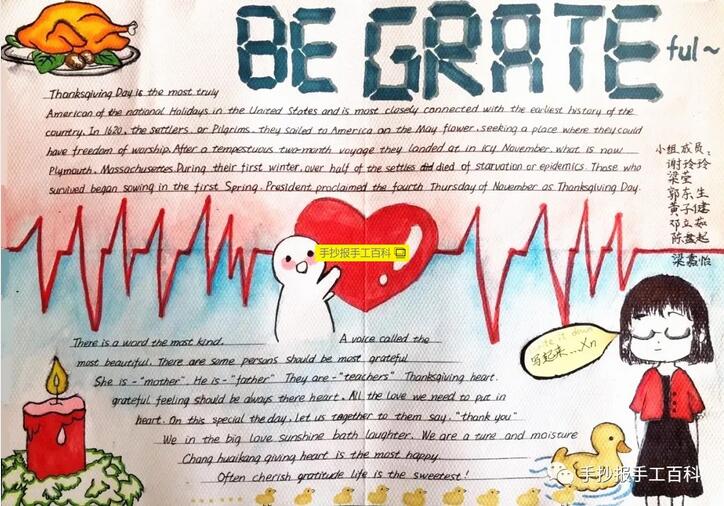 BE GRATE
ful~
Thanksgiving Day is the most truly
American of the national Holidays in the United States and is most closely connected with the earliest history of the
country. In 1620, the settlers, or Pilgrims, they sailed to America on the May flower, seeking a place where they could
have freedom of worship. After a tempestuous two-month voyage they landed at in icy November, what is now
Plymouth, Massachusettes. During their first winter, over half of the settles did died of starvation or epidemics. Those who
survived began sowing in the first Spring. President proclaimed the fourth Thursday of November as Thanksgiving Day.
小组成员:
谢玲玲
梁莹
郭东生
黄子健
邓立茹
陈盈起
梁嘉怡
手抄报手工百科
There is a word the most kind. A voice called the
most beautiful. There are some persons should be most grateful
She is - "mother" He is - "father" They are - "teachers" Thanksgiving heart.
grateful feeling should be always there heart. All the love we need to put in
heart. On this special the day, Let us together to them say. "thank you"
We in the big love sunshine bath laughter. We are a ture and moisture
Chang huaikang giving heart is the most happy
Often cherish gratitude life is the sweetest!
it down
写起来....Xn
手抄报手工百科